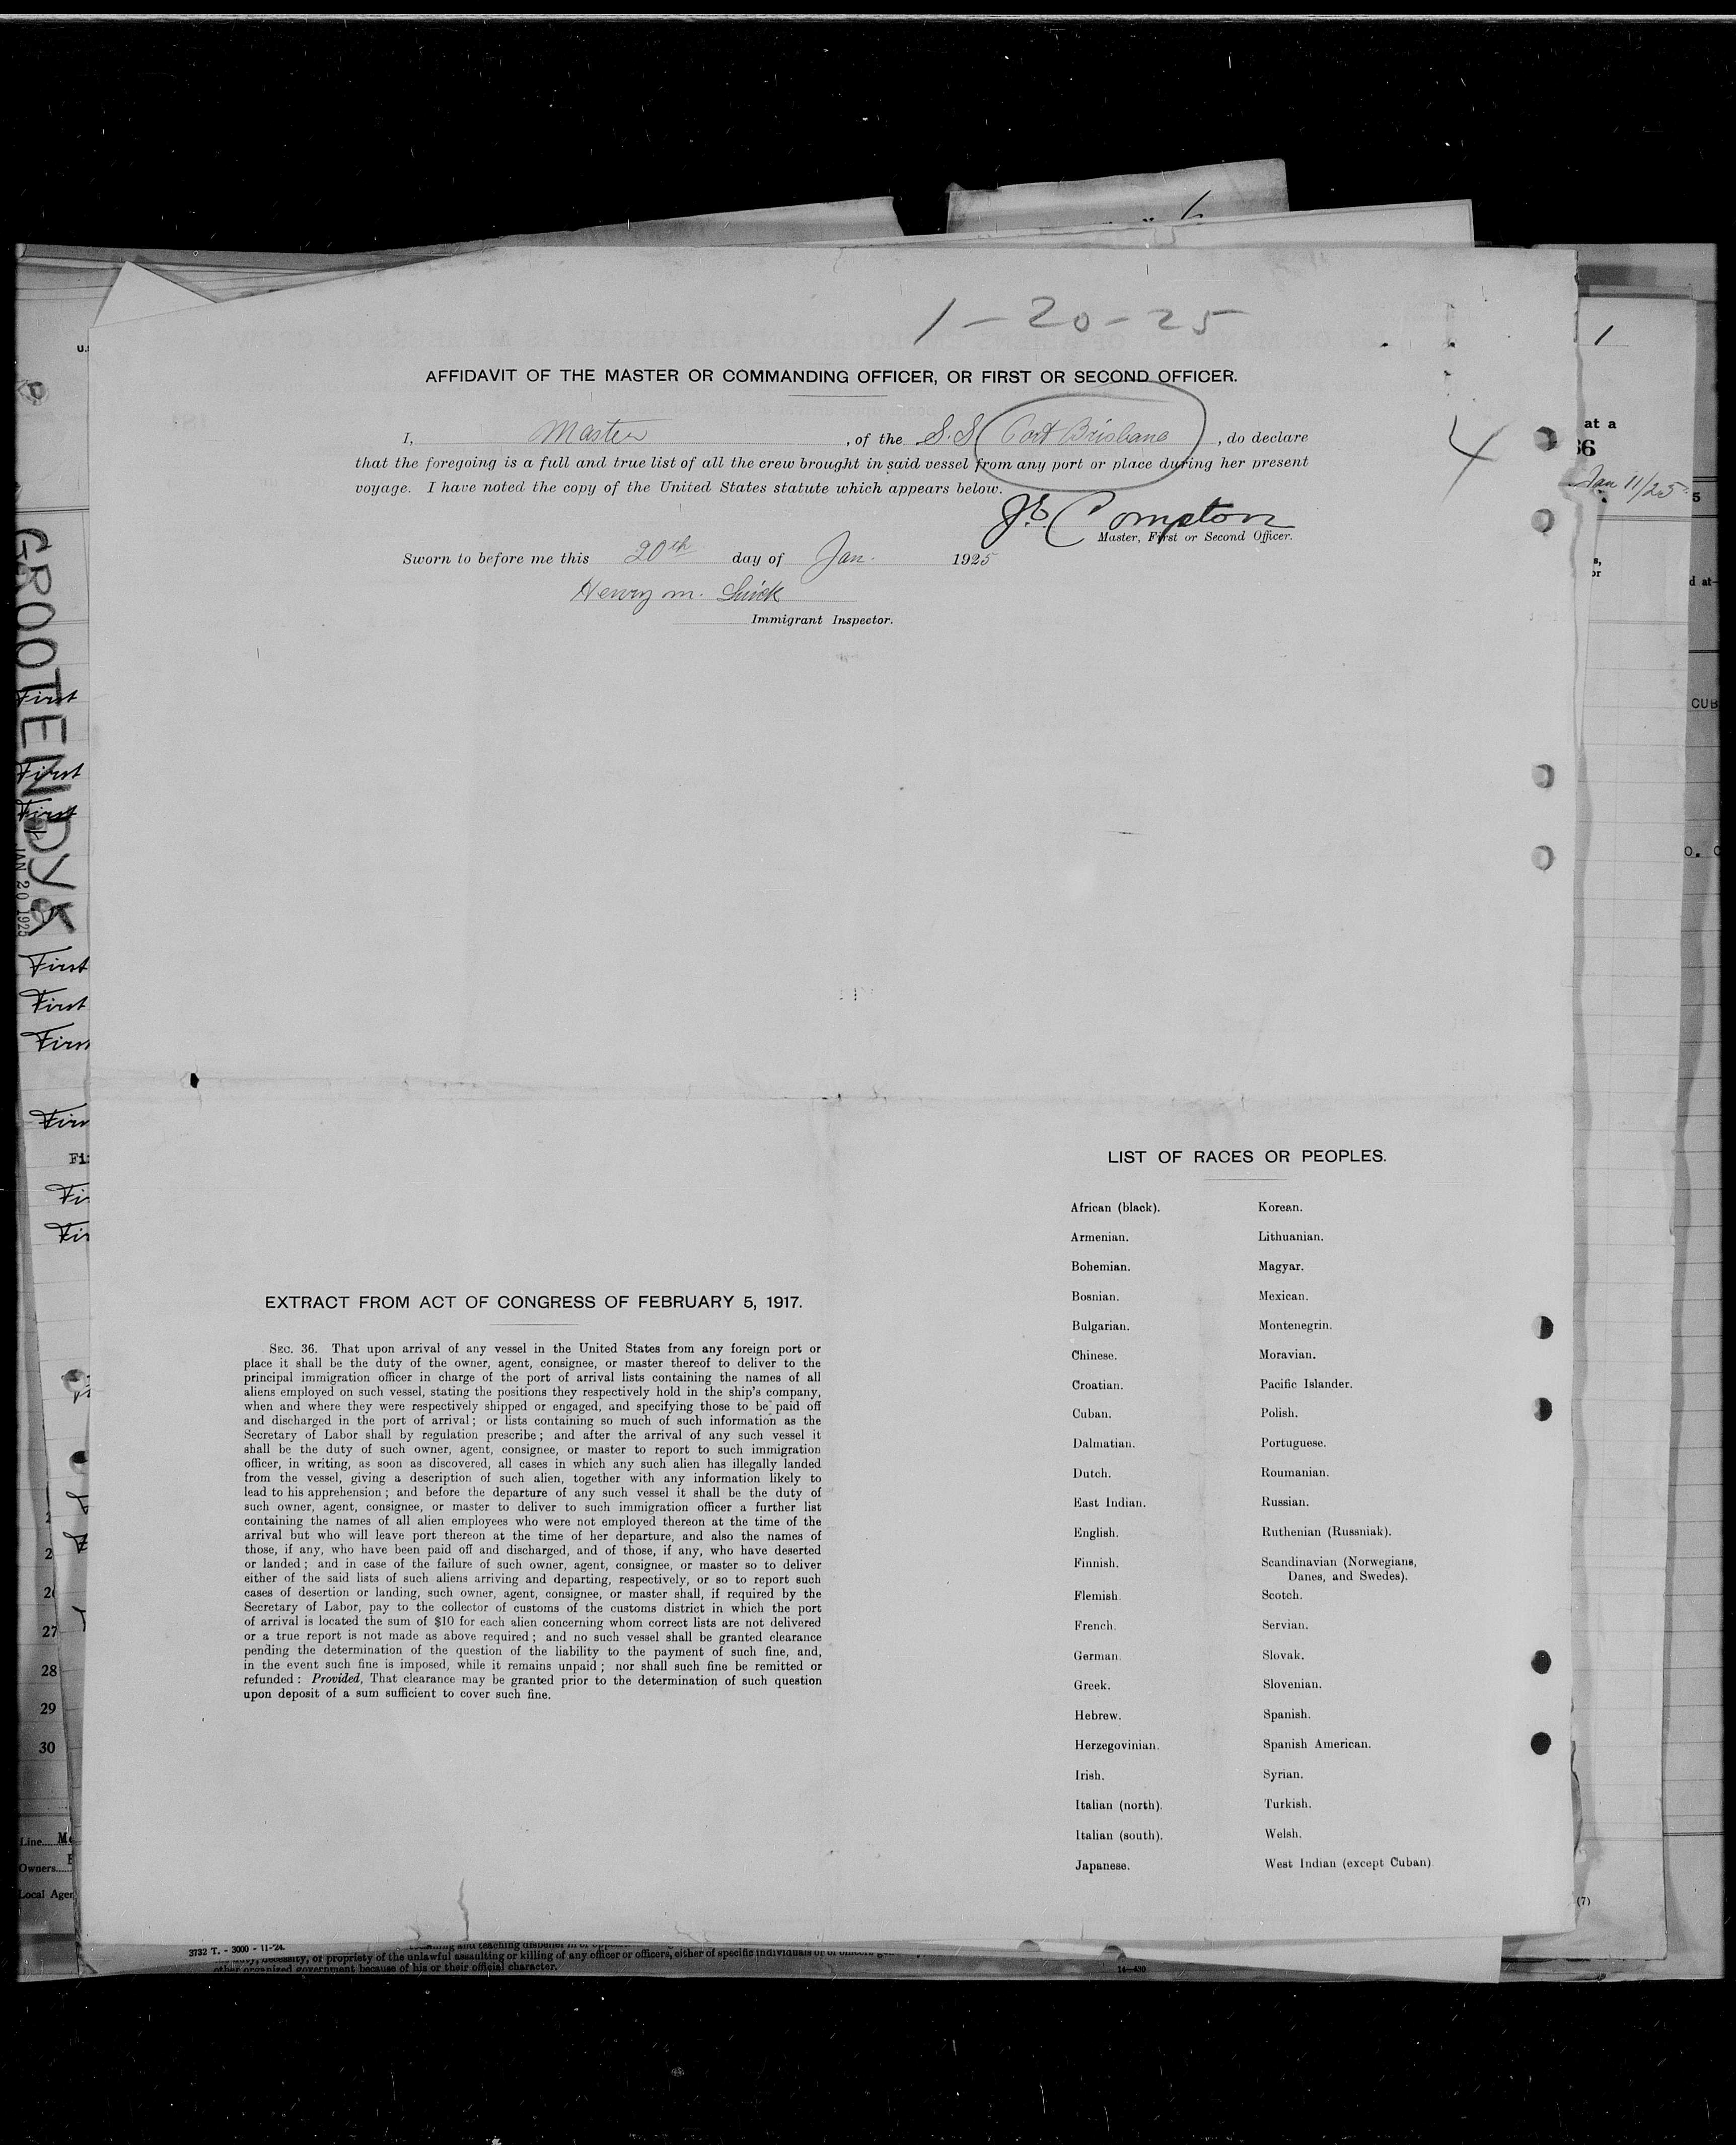 1-20-25
AFFIDAVIT OF THE MASTER OR COMMANDING OFFICER, OR FIRST OR SECOND OFFICER.
I, Master, of the S.S. Port Brisbane, do declare
that the foregoing is a full and true list of all the crew brought in said vessel from any port or place during her present
voyage. I have noted the copy of the United States statute which appears below.
4
J.E. Compton
Master, First or Second Officer.
Sworn to before me this 20th day of Jan. 1925
Henry M.
Immigrant Inspector.
LIST OF RACES OR PEOPLES.
African (black).
Armenian.
Bohemian.
Bosnian.
Bulgarian.
Chinese.
Croatian.
Cuban.
Dalmatian.
Dutch.
East Indian.
English.
Finnish.
Flemish.
French.
German.
Greek.
Hebrew.
Herzegovinian.
Irish.
Italian (north).
Italian (south).
Japanese.
Korean.
Lithuanian.
Magyar.
Mexican.
Montenegrin.
Moravian.
Pacific Islander.
Polish.
Portuguese.
Roumanian.
Russian.
Ruthenian (Russniak).
Scandinavian (Norwegians,
Danes, and Swedes).
Scotch.
Servian.
Slovak.
Slovenian.
Spanish.
Spanish American.
Syrian.
Turkish.
Welsh.
West Indian (except Cuban)
EXTRACT FROM ACT OF CONGRESS OF FEBRUARY 5, 1917.
SEC. 36. That upon arrival of any vessel in the United States from any foreign port or
place it shall be the duty of the owner, agent, consignee, or master thereof to deliver to the
principal immigration officer in charge of the port of arrival lists containing the names of all
aliens employed on such vessel, stating the positions they respectively hold in the ship's company,
when and where they were respectively shipped or engaged, and specifying those to be paid off
and discharged in the port of arrival; or lists containing so much of such information as the
Secretary of Labor shall by regulation prescribe; and after the arrival of any such vessel it
shall be the duty of such owner, agent, consignee, or master to report to such immigration
officer, in writing, as soon as discovered, all cases in which any such alien has illegally landed
from the vessel, giving a description of such alien, together with any information likely to
lead to his apprehension; and before the departure of any such vessel it shall be the duty of
such owner, agent, consignee, or master to deliver to such immigration officer a further list
containing the names of all alien employees who were not employed thereon at the time of the
arrival but who will leave port thereon at the time of her departure, and also the names of
those, if any, who have been paid off and discharged, and of those, if any, who have deserted
or landed; and in case of the failure of such owner, agent, consignee, or master so to deliver
either of the said lists of such aliens arriving and departing, respectively, or so to report such
cases of desertion or landing, such owner, agent, consignee, or master shall, if required by the
Secretary of Labor, pay to the collector of customs of the customs district in which the port
of arrival is located the sum of $10 for each alien concerning whom correct lists are not delivered
or a true report is not made as above required; and no such vessel shall be granted clearance
pending the determination of the question of the liability to the payment of such fine, and,
in the event such fine is imposed, while it remains unpaid; nor shall such fine be remitted or
refunded: Provided, That clearance may be granted prior to the determination of such question
upon deposit of a sum sufficient to cover such fine.
GROOTENDYK
JAN 20 1925
First
First
First
First
First
27
28
29
30
Line
Owners
Local
at a
Jan 11/25
CUB
(7)
3732 T. - 3000 - 11-'24.
necessity, or propriety of the unlawful assaulting or killing of any officer or officers, either of specific individuals or of
other organized government because of his or their official character.